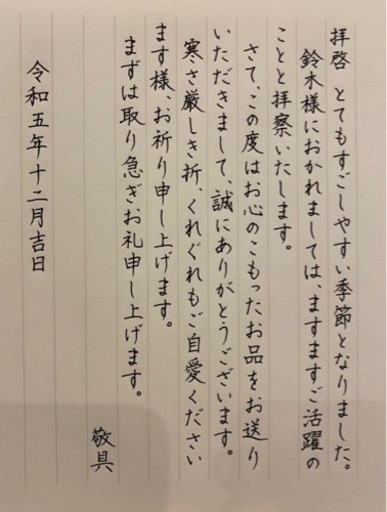 拝啓　とてもすごしやすい季節となりました。
鈴木様におかれましては、ますますご活躍の
ことと拝察いたします。
さて、この度はお心のこもったお品をお送り
いただきまして、誠にありがとうございます。
寒さ厳しき折、くれぐれもご自愛ください
ます様、お祈り申し上げます。
まずは取り急ぎお礼申し上げます。
敬具
令和五年十二月吉日